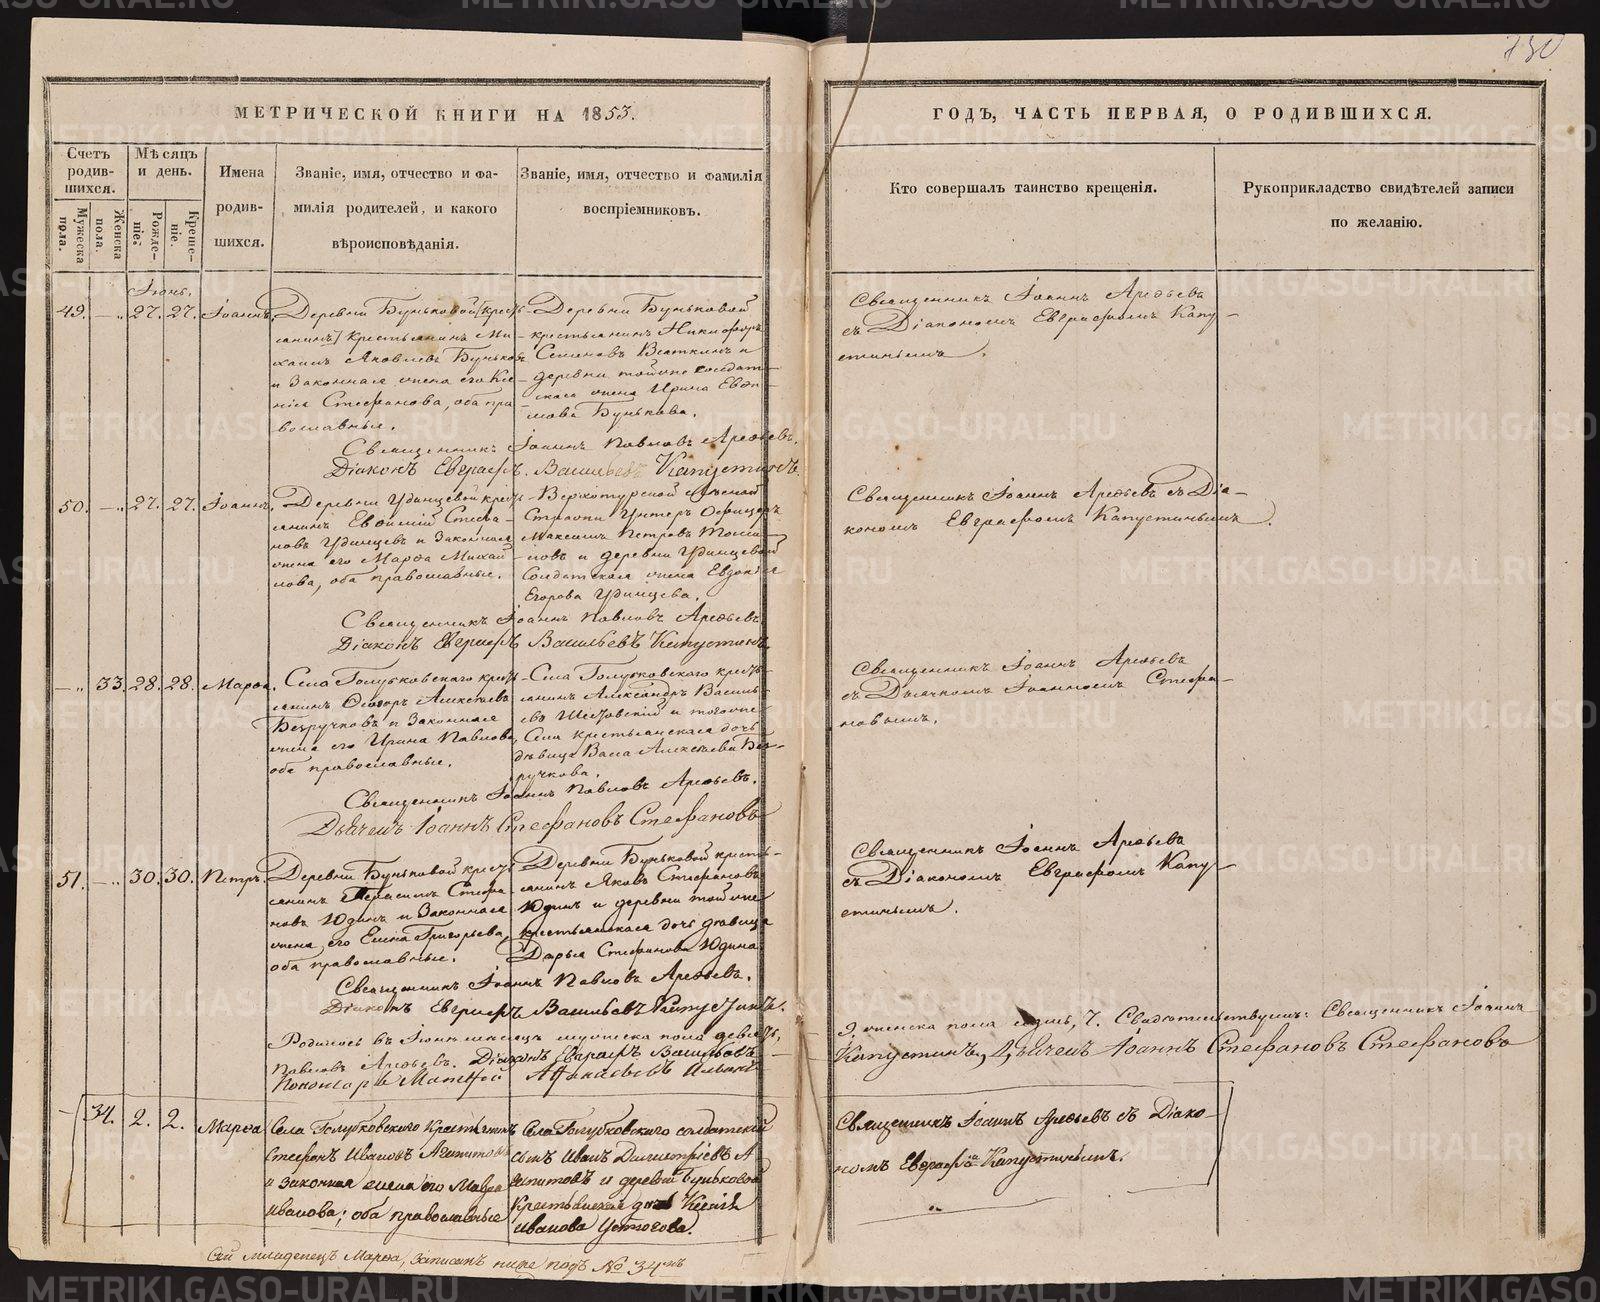 730
МЕТРИЧЕСКОЙ КНИГИ НА 1853.
Счетъ родившихся.
Мужеска пола.
Женска пола.
Мѣсяцъ и день.
Рожденіе.
Крещеніе.
Имена родившихся.
Званіе, имя, отчество и фамилія родителей, и какого вѣроисповѣданія.
Званіе, имя, отчество и фамилія воспріемниковъ.
ГОДЪ, ЧАСТЬ ПЕРВАЯ, О РОДИВШИХСЯ.
Кто совершалъ таинство крещенія.
Рукоприкладство свидѣтелей записи по желанію.
Іюнь.
49. 27. 27. Іоаннъ.
Деревни Буньковой [кресть
янинъ] крестьянинъ Ми
хаилъ Яковлевъ Буньков
и Законная жена его Ксе
нія Стефанова, оба пра
вославные.
Деревни Буньковой
крестьянинъ Никифоръ
Семеновъ Вяткинъ и
деревни тойже солдат
ская жена Ирина Евдо
Бунькова.
Священникъ Іоаннъ Арефьевъ
съ Діакономъ Евграфомъ Капу
стинымъ.
Священникъ Іоаннъ Павловъ Арефьевъ.
Діаконъ Евграфъ Васильевъ Капустинъ.
50. 27. 27. Іоаннъ.
Деревни Удинцевой кресть
янинъ Евфимій Стефа
новъ Удинцевъ и Законная
жена его Марфа Михай
лова, оба православные.
Верхотурской
Унтеръ Офицеръ
Максимъ Петровъ
и деревни Удинцевой
Солдатская жена Евдокія
Егорова Удинцева.
Священникъ Іоаннъ Арефьевъ съ Діа
кономъ Евграфомъ Капустинымъ.
Священникъ Іоаннъ Павловъ Арефьевъ
Діаконъ Евграфъ Васильевъ Капустинъ.
33. 28. 28. Марфа.
Села Голубковскаго кресть
янинъ Феодоръ Алексѣевъ
Безручковъ и Законная
жена его Ирина Павлова,
оба православные.
Села Голубковскаго кресть
янинъ Александръ Василь
евъ и тогоже
Села крестьянская дочь
дѣвица Алексѣева Без
ручкова.
Священникъ Іоаннъ Арефьевъ
съ Дьячкомъ Іоанномъ Стефа
новымъ.
Священникъ Іоаннъ Павловъ Арефьевъ.
Дьячекъ Іоаннъ Стефановъ Стефановъ
51. 30. 30. Петръ.
Деревни Буньковой кресть
янинъ Герасимъ Стефа
новъ Юдинъ и Законная
жена его Елена Григорьева,
оба православные.
Деревни Буньковой кресть
янинъ Яковъ Стефановъ
Юдинъ и деревни тойже
крестьянская дочь дѣвица
Дарья Стефанова Юдина
Священникъ Іоаннъ Арефьевъ
съ Діакономъ Евграфомъ Капу
стинымъ.
Священникъ Іоаннъ Павловъ Арефьевъ.
Діаконъ Евграфъ Васильевъ Капустинъ.
Родилось въ Іюнѣ мѣсяцѣ мужеска пола девять,
9 женска пола семь, 7. Свидѣтельствуемъ: Священникъ Іоаннъ
Павловъ Арефьевъ. Діаконъ Евграфъ Васильевъ
Капустинъ, Дьячекъ Іоаннъ Стефановъ Стефановъ
Пономарь Матфей Афанасьевъ
34. 2. 2. Марфа
Села Голубковскаго Крестьянинъ
Стефанъ Ивановъ Агапитовъ
и Законная жена его Мавра
Иванова; оба православные
Села Голубковскаго солдатскій
сынъ Иванъ Димитріевъ А
гапитовъ и деревни Буньковой
Крестьянская дочь Ксенія
Иванова Устюгова.
Священникъ Іоаннъ Арефьевъ съ Діако
номъ Евграфомъ Капустинымъ.
Сей младенецъ Марфа, записанъ ниже подъ № 34мъ